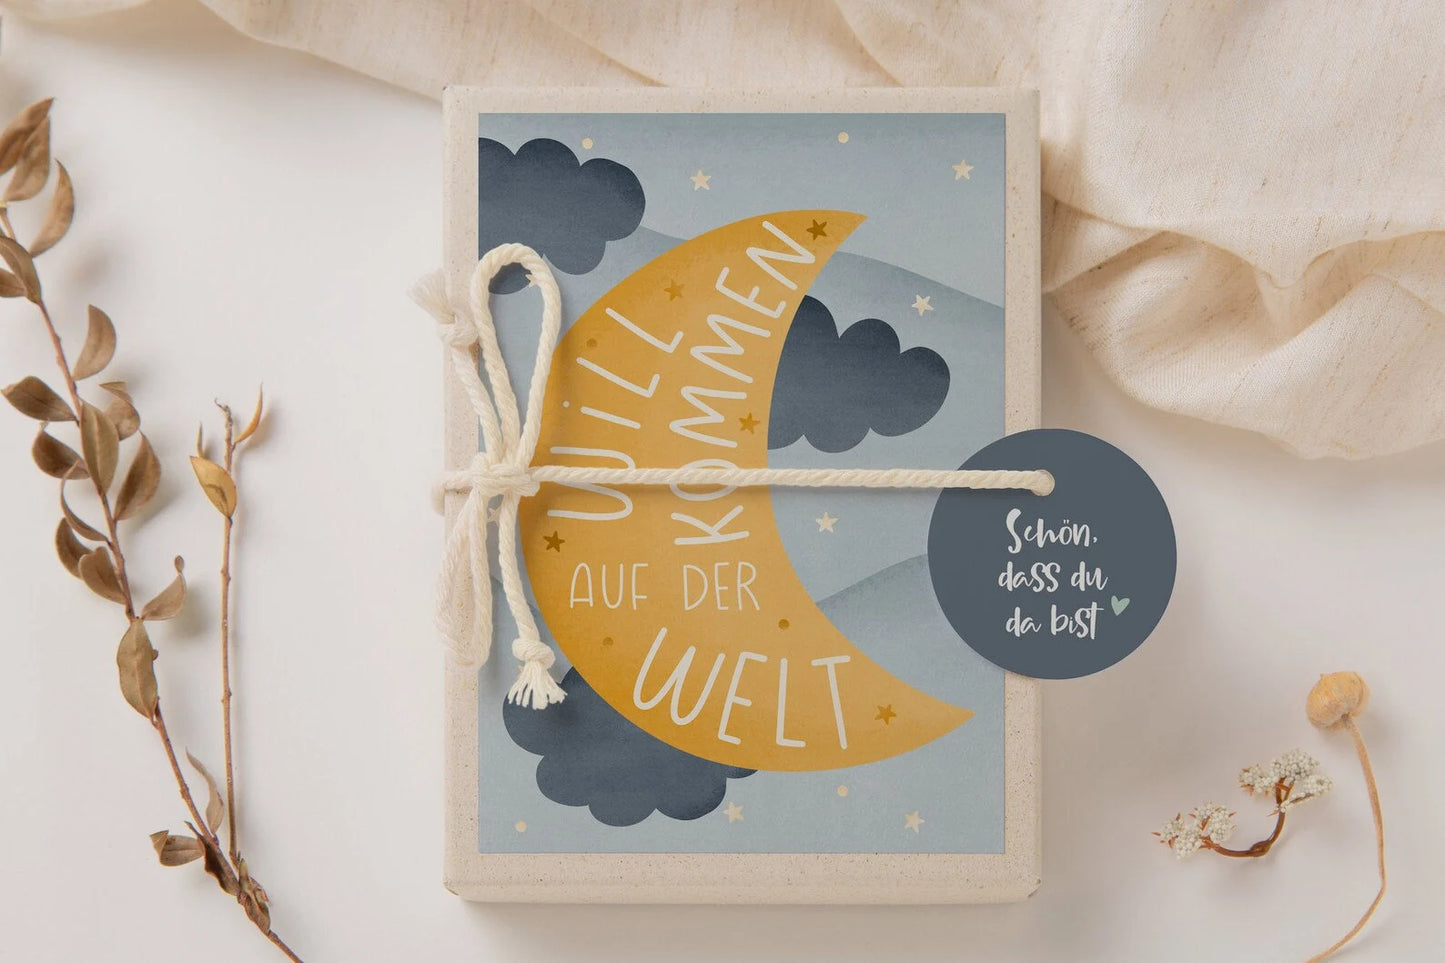 WiLL
KOMMEN
AUF DER
WELT
Schön,
dass du
da bist